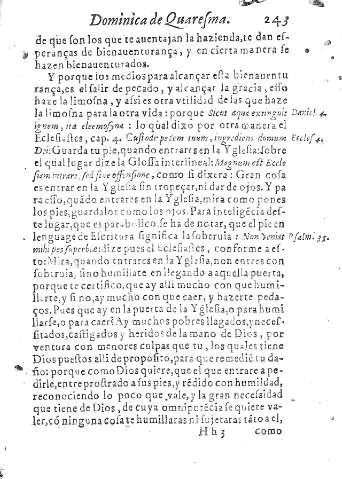 Dominica de Quaresma. 243
de que son los que te auentajan la hazienda, te dan es-
peranças de bienauenturança, y en cierta manera se
hazen bienauenturados.
Y porque los medios para alcançar esta bienauentu
rança, es el salir de pecado, y alcançar la gracia, esso
haze la limosna, y assi es otra vtilidad de las que haze
la limosna para la otra vida: porque Sicut aqua extinguit Daniel. 4.
ignem, ita eleemosina: lo qual dixo por otra manera el
Eclesiastes, cap. 4. Custodi pedem tuum, ingrediens domum Ecclesi. 4.
Dei: Guarda tu pie, quando entrares en la Yglesia: sobre
el qual lugar dize la Glossa interlineal: Magnum est Eccle
siam intrare, sed sine offensione, como si dixera: Gran cosa
es entrar en la Yglesia sin tropeçar, ni dar de ojos. Y pa
ra esso, quãdo entrares en la Yglesia, mira como pones
los pies, guardalos como los ojos. Para inteligẽcia des-
te lugar, que es parabolico, se ha de notar, que el pie en
lenguage de Escritura significa la soberuia: Non veniat Psalm. 35.
mihi pes superbiæ: dize pues el Eclesiastes, conforme a es-
to: Mira, quando entrares en la Yglesia, non entres con
soberuia, sino humillate en llegando a aquella puerta,
porque te certifico, que ay alli mucho con que humi-
llarte, y si no, ay mucho con que caer, y hazerte peda-
ços. Pues que ay en la puerta de la Yglesia, o para humi
llarse, o para caer? Ay muchos pobres llagados, y neces-
sitados, castigados, y heridos de la mano de Dios, por
ventura con menores culpas que tu, los quales tiene
Dios puestos alli de proposito, para que remediẽ tu da-
ño: porque como Dios quiere, que el que entrare a pe-
dirle, entre prostrado a sus pies, y rẽdido con humildad,
reconociendo lo poco que vale, y la gran necessidad
que tiene de Dios, de cuya omnipotẽcia se quiere va-
ler, cõ ninguna cosa te humillaras ni sujetaras tãto a el,
Hh 3 como